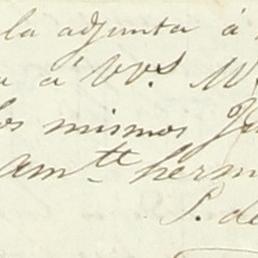 la adjunta á
a á VVs. M
los mismos
am.tt herm
S. de